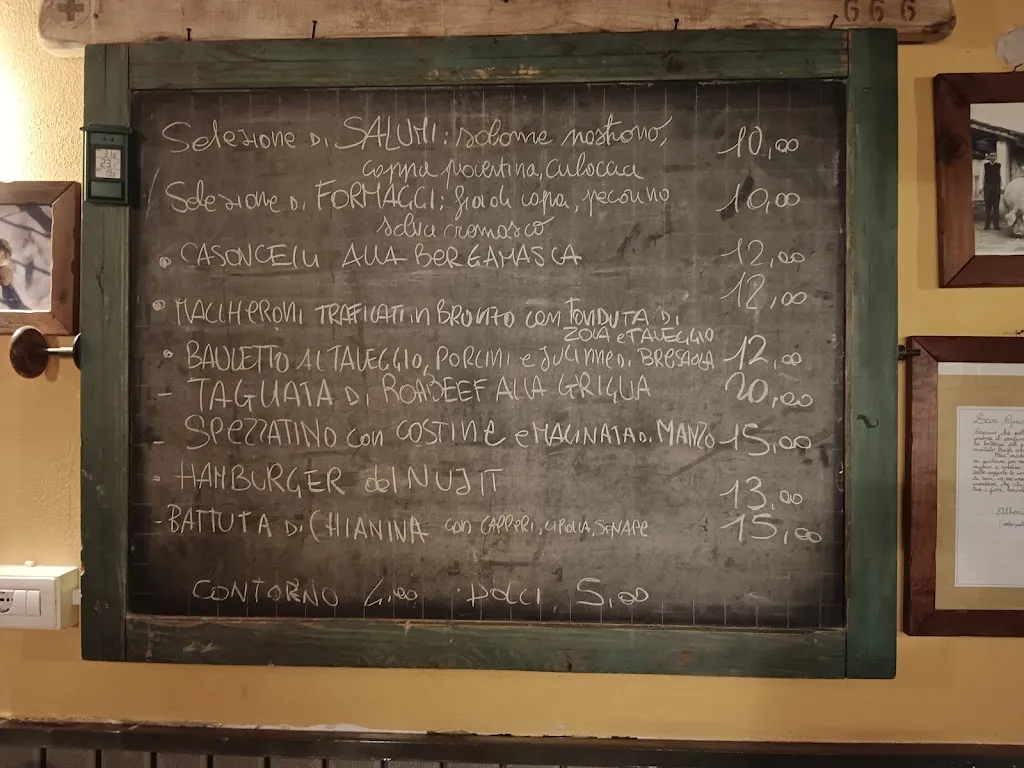 666
Selezione Di SALUMI: salame nostrano, 10,00
coppa piacentina, culaccia
Selezione Di FORMAGGI: fiordicapra, pecorino 10,00
salva cremasco
• CASONCELLI ALLA BERGAMASCA 12,00
• MACCHERONI TRAFILATI in BRONZO con FONDUTA DI 12,00
ZOLA e TALEGGIO
• BAULETTO AL TALEGGIO, PORCINI e JULIENNE DI BRESAOLA 12,00
- TAGLIATA DI ROABEEF ALLA GRIGLIA 20,00
- SPEZZATINO con COSTINE e MACINATA DI MANZO 15,00
- HAMBURGER del NUJIT 13,00
- BATTUTA DI CHIANINA con CAPPERI, CIPOLLA, SENAPE 15,00
CONTORNO 4,00 • DOLCI 5,00